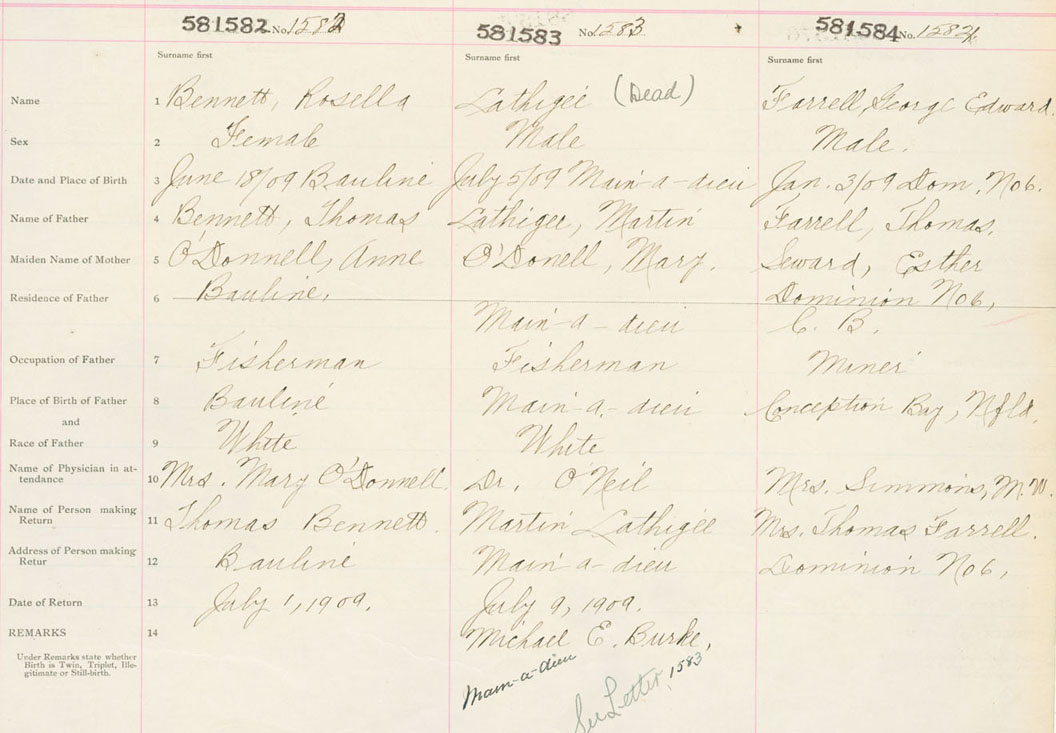 581582 No. 1582 581583 No. 1583 581584 No. 1584
Surname first Surname first Surname first
Name 1 Bennett, Rosella Lathigee (Dead) Farrell, George Edward.
Sex 2 Female Male Male.
Date and Place of Birth 3 June 18/09 Bauline July 5/09 Main-a-dieu Jan. 3/09 Dom. No 6.
Name of Father 4 Bennett, Thomas Lathigee, Martin Farrell, Thomas.
Maiden Name of Mother 5 O'Donnell, Anne O'Donell, Mary. Seward, Esther
Residence of Father 6 Bauline, Main-a-dieu Dominion No 6,
C. B.
Occupation of Father 7 Fisherman Fisherman Miner
Place of Birth of Father 8 Bauline Main-a-dieu Conception Bay, Nfld.
and
Race of Father 9 White White
Name of Physician in at-
tendance 10 Mrs. Mary O'Donnell. Dr. O'Neil Mrs. Simmons, M.W.
Name of Person making
Return 11 Thomas Bennett. Martin Lathigee Mrs. Thomas Farrell.
Address of Person making
Retur 12 Bauline Main-a-dieu Dominion No 6,
Date of Return 13 July 1, 1909. July 9, 1909.
REMARKS 14 Michael E. Burke,
Under Remarks state whether
Birth is Twin, Triplet, Ille-
gitimate or Still-birth.
Main-a-dieu
See Letter, 1583